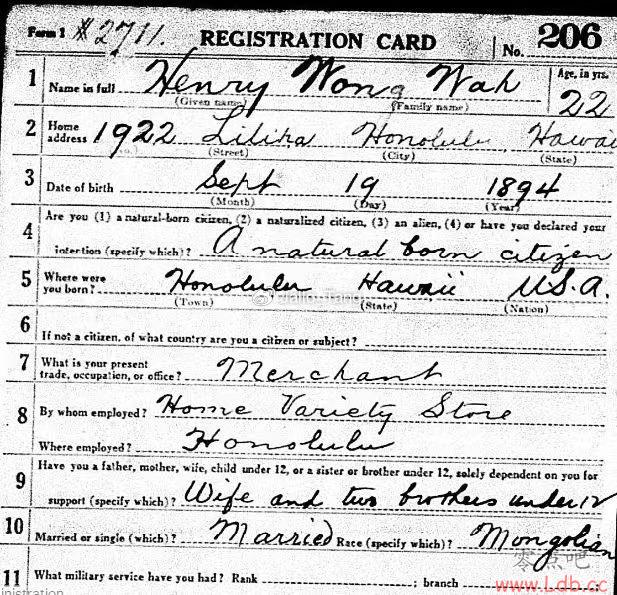 Form 1 #2711. REGISTRATION CARD No. 206
1 Name in full Henry Wong Wah Age, in yrs.
(Given name) (Family name) 22
2 Home address 1922 Liliha Honolulu Hawaii
(No.) (Street) (City) (State)
3 Date of birth Sept 19 1894
(Month) (Day) (Year)
4 Are you (1) a natural-born citizen, (2) a naturalized citizen, (3) an alien, (4) or have you declared your
intention (specify which)? A natural born citizen
5 Where were you born? Honolulu Hawaii U.S.A.
(Town) (State) (Nation)
6 If not a citizen, of what country are you a citizen or subject?
7 What is your present trade, occupation, or office? Merchant
8 By whom employed? Home Variety Store
Where employed? Honolulu
9 Have you a father, mother, wife, child under 12, or a sister or brother under 12, solely dependent on you for
support (specify which)? Wife and two brothers under 12
10 Married or single (which)? Married Race (specify which)? Mongolian
零点吧
11 What military service have you had? Rank ; branch
www.Ldb.cc